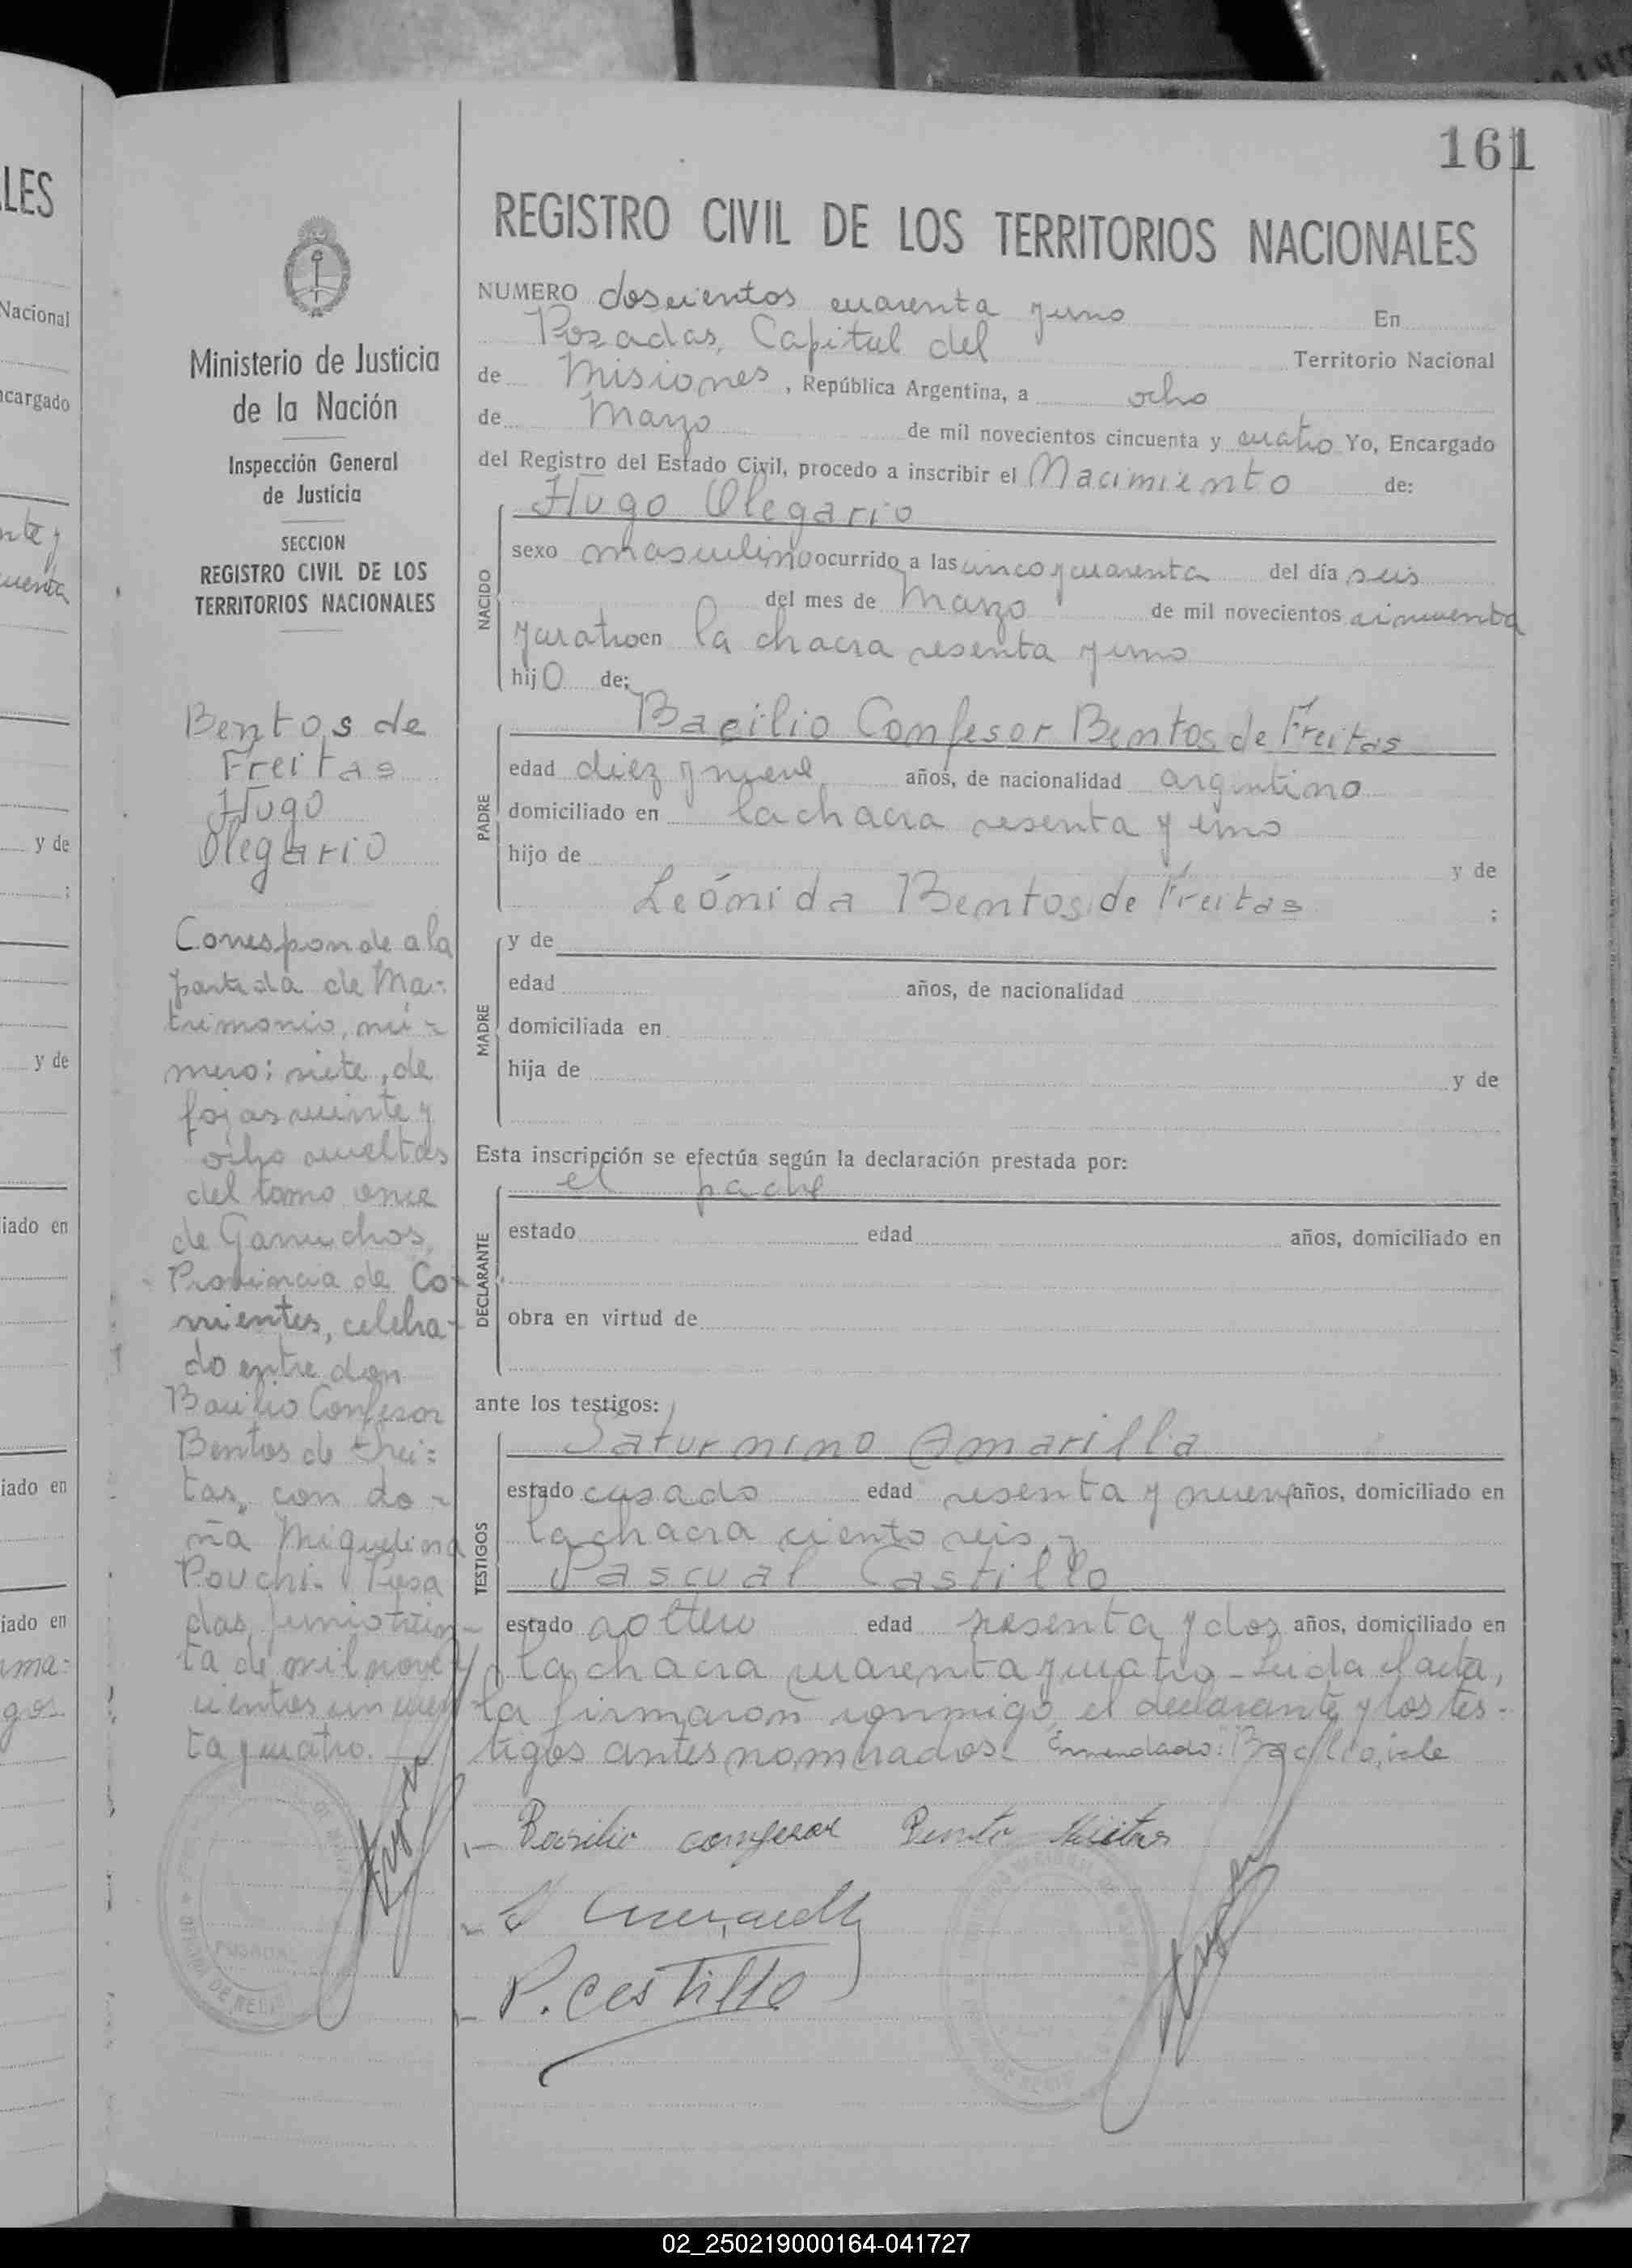 161
REGISTRO CIVIL DE LOS TERRITORIOS NACIONALES
NUMERO doscientos cuarenta y uno En
Posadas, Capital del Territorio Nacional
de Misiones, República Argentina, a ocho
de Marzo de mil novecientos cincuenta y cuatro Yo, Encargado
del Registro del Estado Civil, procedo a inscribir el Nacimiento de:
NACIDO
Hugo Olegario
sexo masculino ocurrido a las cinco y cuarenta del día seis
del mes de Marzo de mil novecientos cincuenta
y cuatro en la chacra sesenta y uno
hijo de:
PADRE
Bacilio Confesor Bentos de Freitas
edad diez y nueve años, de nacionalidad argentino
domiciliado en la chacra sesenta y uno
hijo de y de
Leónida Bentos de Freitas ;
MADRE
y de
edad años, de nacionalidad
domiciliada en
hija de y de
Esta inscripción se efectúa según la declaración prestada por:
DECLARANTE
el padre
estado edad años, domiciliado en
obra en virtud de
ante los testigos:
TESTIGOS
Saturnino Amarilla
estado casado edad sesenta y nueve años, domiciliado en
la chacra ciento seis, y
Pascual Castillo
estado soltero edad sesenta y dos años, domiciliado en
la chacra cuarenta y cuatro - Leida el acta,
la firmaron conmigo, el declarante y los tes-
tigos antes nombrados. Enmendado: Bacilio, vale
Basilio confesor Bento Freitas
P. Castillo
Ministerio de Justicia
de la Nación
Inspección General
de Justicia
SECCION
REGISTRO CIVIL DE LOS
TERRITORIOS NACIONALES
Bentos de
Freitas
Hugo
Olegario
Corresponde a la
partida de Ma-
trimonio, nú-
mero: siete, de
fojas veinte y
ocho vueltas
del tomo once
de Garruchos,
Provincia de Co-
rrientes, celebra-
do entre don
Bacilio Confesor
Bentos de Frei-
tas, con do-
ña Miguelina
Pouchi. Posa
das, Junio trein-
ta de mil nove
cientos cincuen
ta y cuatro.
LES
Nacional
ncargado
y de
y de
iado en
iado en
iado en
02_250219000164-041727